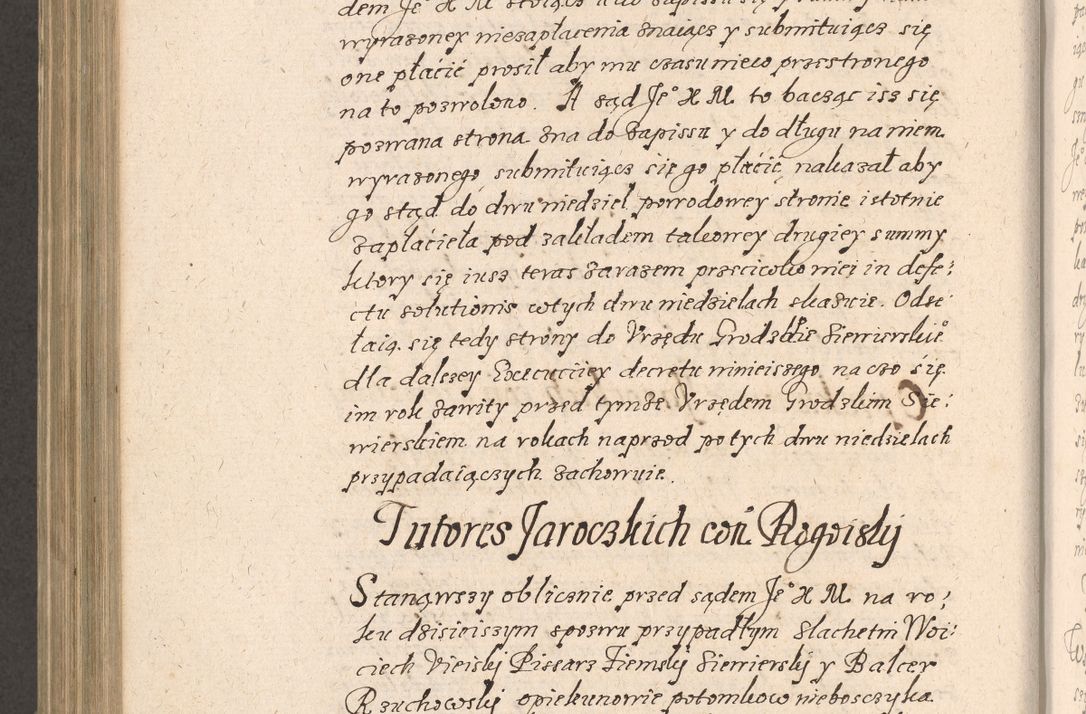 wyrazoney niezapłacenia znaiącz y submituiącz się
one płácić prosił aby mu czasu nieco przestronego
na to pozwolono. A sąd Jeº X M to bacząc isz się
pozwana strona zna do zapissu y do długu na niem
wyrazonego submituiącz się go płácić, nakazał aby
go stąd do dwu niedziel powodowey stronie istotnie
zapłácieła pod zakładem takowey drugiey summy
ktory się iusz teras zarazem przeciwko niei in defe:
ctu solutionis wtych dwu niedzielach skazuie. Odse:
łaią się tedy strony do Vrzędu Grodzkie Siewierskieº
dla dalszey Execuciiey decretu ninieiszego, na czo się
im rok zawity przed tymże Vrzędem Grodzkim Sie:
wierskiem na rokach naprzod po tych dwu niedzielach
przypadaiączych zachowuie.
Tutores Jaroczkich coñ Rogoiskij
Stanąwszy oblicznie przed sądem Jeº X M na ro:
ku dzisieiszym spozwu przypadłym Slachetni Woi:
ciech Vieiskij Pissarz Ziemskij Siewierskij y Balcer
Rzuchowskij opiekunowie potomkow nieboszczyka